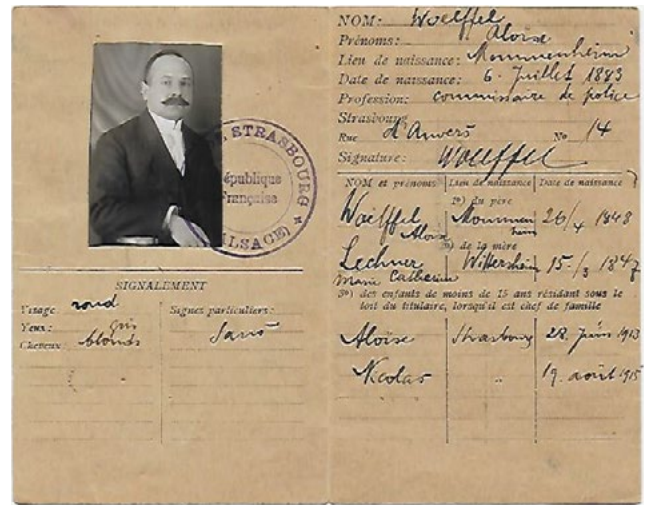 STRASBOURG
République
Française
(ALSACE)
SIGNALEMENT
Visage rond
Yeux: gris
Cheveux: blonds
Signes particuliers:
Sans
NOM: Woelffel
Prénoms: Aloise
Lieu de naissance: Mommenheim
Date de naissance: 6. Juillet 1883
Profession: commissaire de police
Strasbourg
Rue d'Anvers No 14
Signature: Woelffel
NOM et prénoms Lieu de naissance Date de naissance
1º) du père
Woelffel Aloise Mommenheim 26/4 1848
2º) de la mère
Lechner Marie Catherine Wittersheim 15./3 1847
3º) des enfants de moins de 15 ans résidant sous le
toit du titulaire, lorsqu'il est chef de famille
Aloise Strasbourg 28. Juin 1913
Nicolas " 19. août 1915